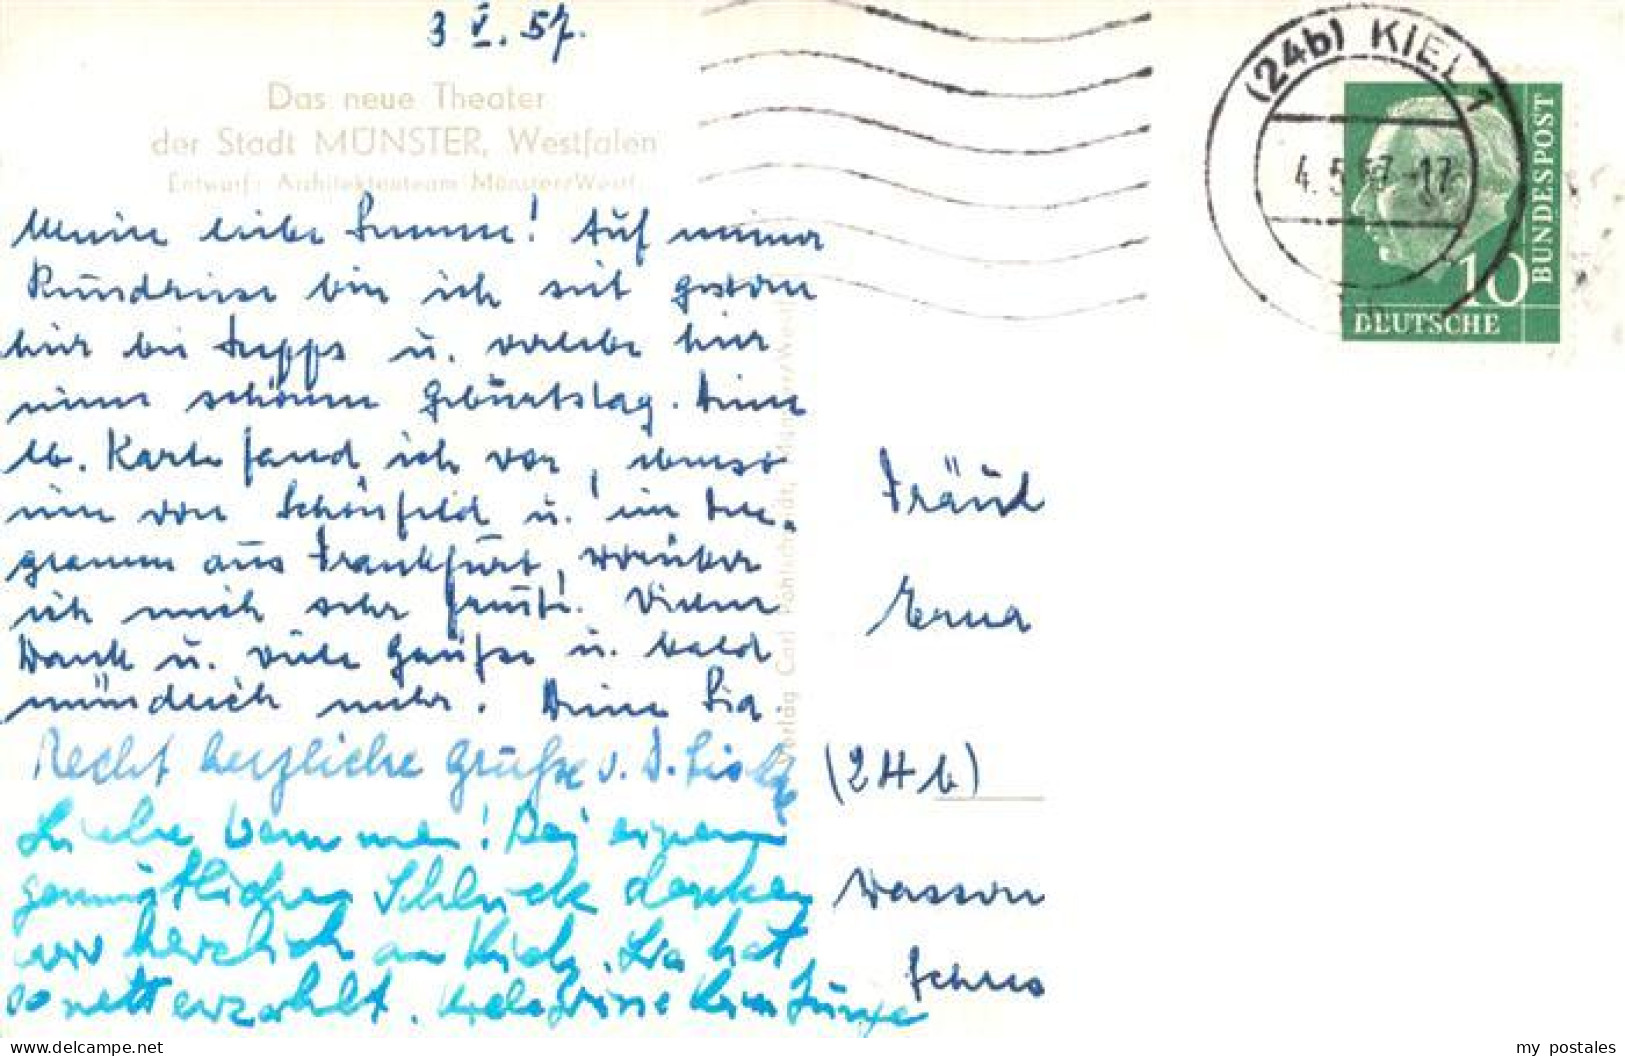 3 V. 57.
Das neue Theater
der Stadt MÜNSTER, Westfalen
Entwurf: Architektenteam Münster/Westf.
Meine liebe ! Auf meiner
Rundreise bin ich seit gestern
hier bei Sepps u. verlebe hier
einen schönen Geburtstag. Deine
lb. Karte fand ich vor, ebenso
eine von Schönfeld u. ein Tele-
gramm aus Frankfurt, worüber
ich mich sehr freute! Vielen
Dank u. viele Grüße u. bald
mündlich mehr. Deine Lia
Recht herzliche Grüße v. D.
Liebe ! Bei einem
gemütlichen Schluck denken
wir herzlich an Dich. Lia hat
so nett erzählt.
Verlag Carl Pohlschmidt, Münster/Westf.
(24b) KIEL 1
4.5.57-17
10
DEUTSCHE
BUNDESPOST
Fräul
Erna
(24b)